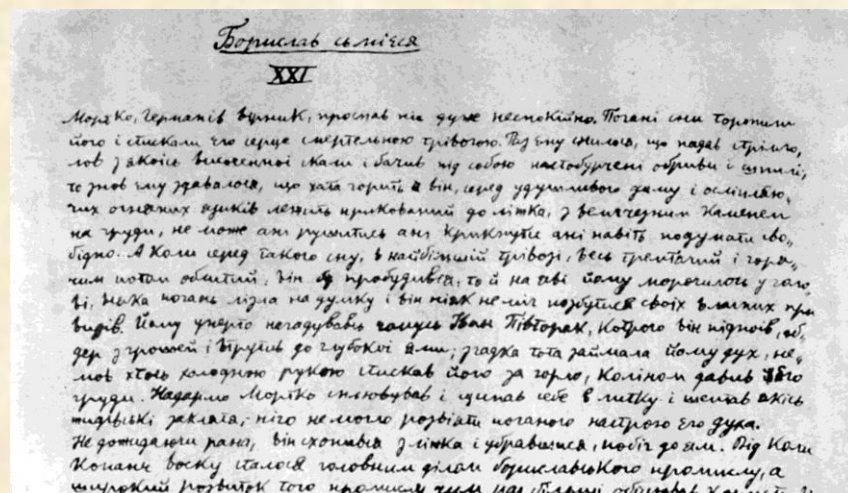 Борислав сьмієся
XXI
Мортко, Германів вірник, проспав ніч дуже неспокійно. Погані сни торопили
його і стискали єго серце смертельною трівогою. Раз ему снилося, що падав стрімго,
лов з якоїсь височенної скали і бачив під собою настобурчені обриви і шпилї,
то знов ему здавалося, що хата горить а він, серед удушливого диму і осліпляю„
чих огняних язиків лежить прикований до ліжка, з величезним каменем
на груди, не може ані рушитись ані крикнути ані навіть подумати сво„
бідно. А коли серед такого сну, в найбільшій трівозі, весь тремтячий і горя„
чим потом облитий, він пробудився, то й на яві йому морочилось у голо„
ві, всяка погань лізла на думку і він ніяк не міг позбутися своїх власних при
видів. Йому уперто нагадувавсь чомусь Іван Півторак, котрого він підпоїв, об„
дер з грошей і втрутив до глубокої ями; згадка тота займала йому дух, не„
мов хтось холодною рукою стискав його за горло, коліном давив його
груди. Надармо Мортко сплювував і щипав себе в литку і шептав якісь
жидівські заклятя; ніщо не могло розвіяти поганого настрою єго духа.
Не дожидаючи рана, він схопився з ліжка і убравшися, побіг до ям. Від коли
копанє воску сталося головним ділом бориславського промислу, а
широкий розвиток того промислу чим раз більші